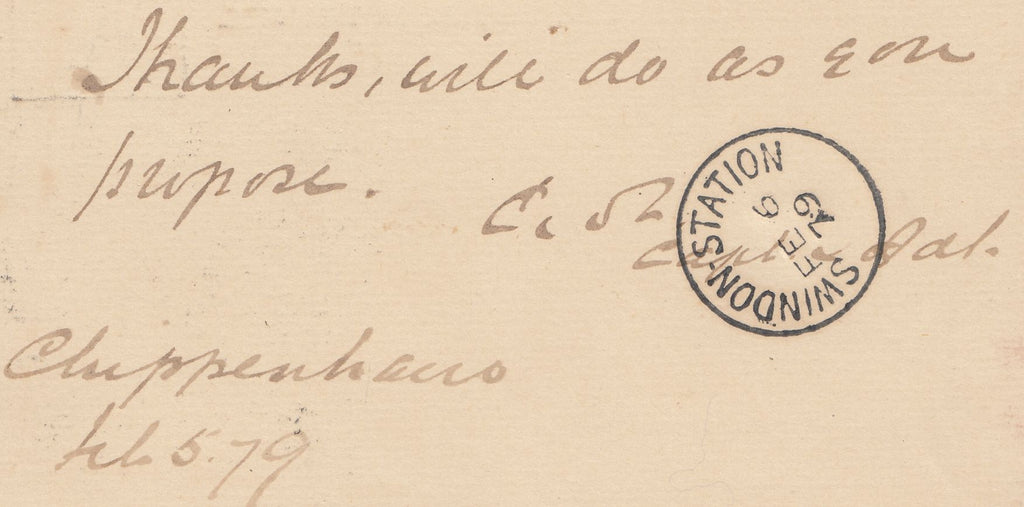 Thanks, will do as you
propose.
Capt & Adt.
Chippenham
Feb 5. 79
SWINDON-STATION
6
FE
79